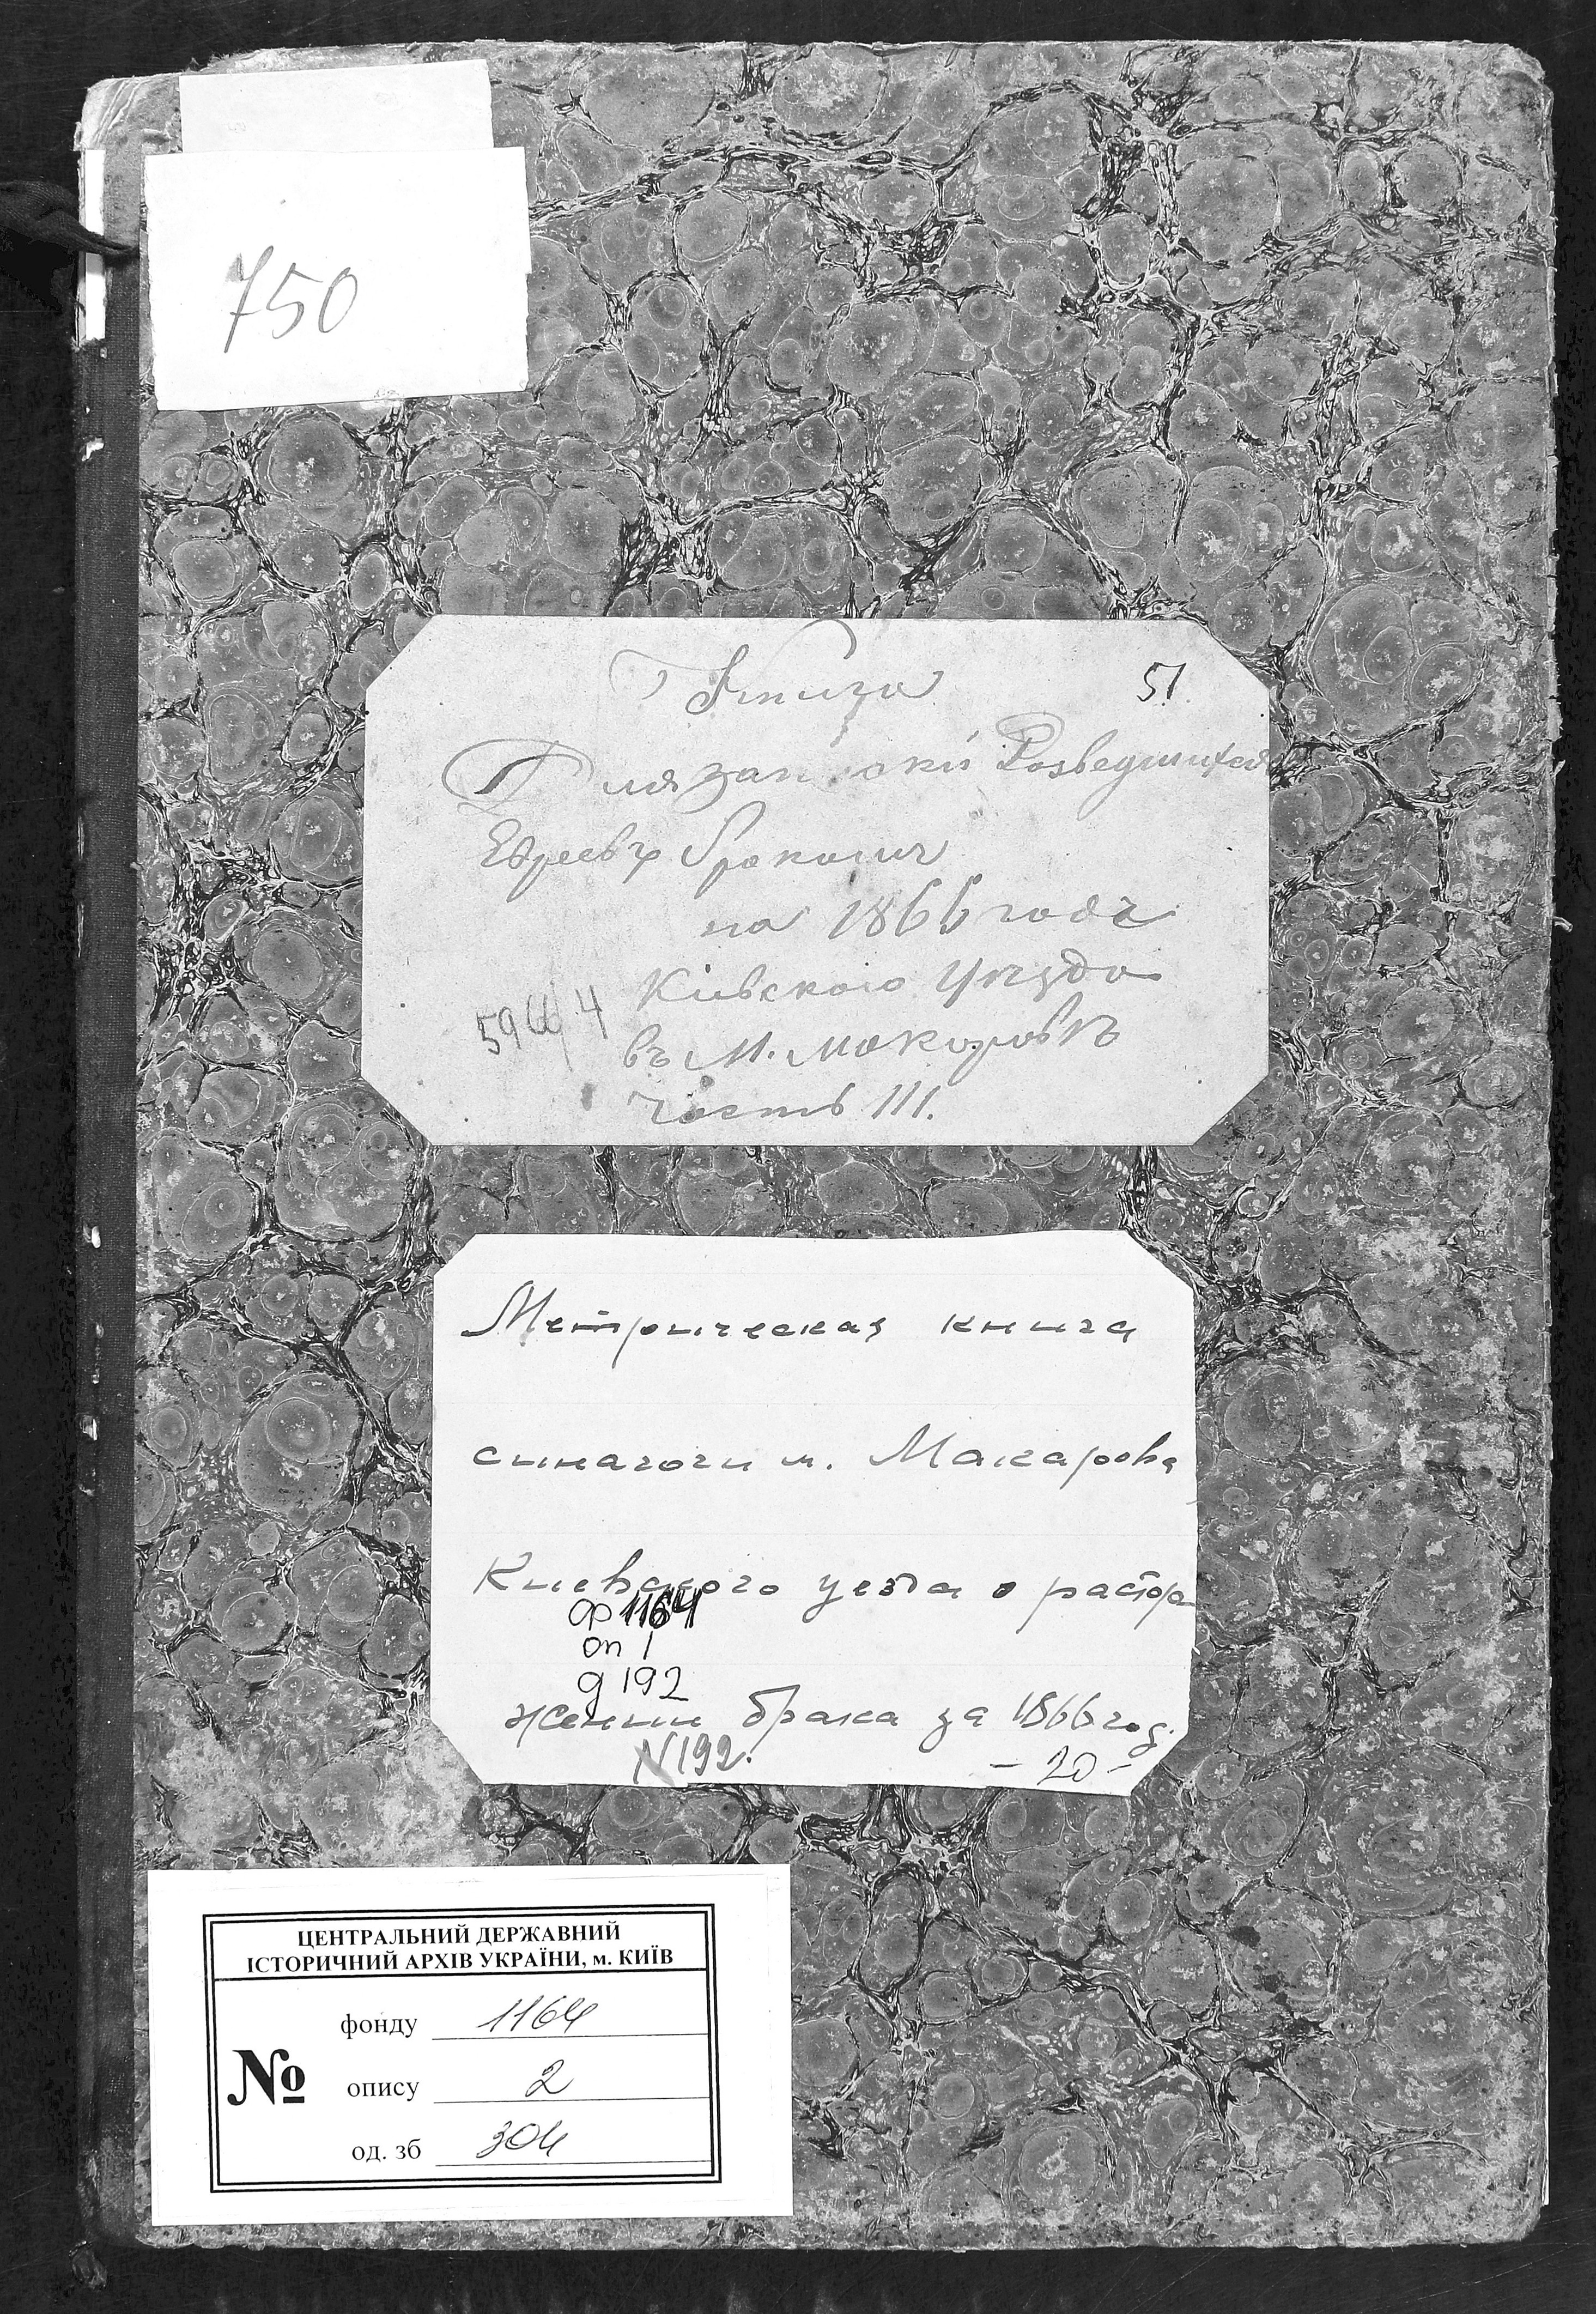 750
Книга
51
Для записки Розведшихся
Евреевъ Браками
на 1866 годъ
Кіевского Уѣзда
въ М. Макаровѣ
часть III.
Метрическая книга
синагоги м. Макарова
Киевского уезда о расторе
ф 1164
оп 1
д 192
жении брака за 1866 год.
N 192.
- 20 -
ЦЕНТРАЛЬНИЙ ДЕРЖАВНИЙ
ІСТОРИЧНИЙ АРХІВ УКРАЇНИ, м. КИЇВ
№
фонду 1164
опису 2
од. зб 304